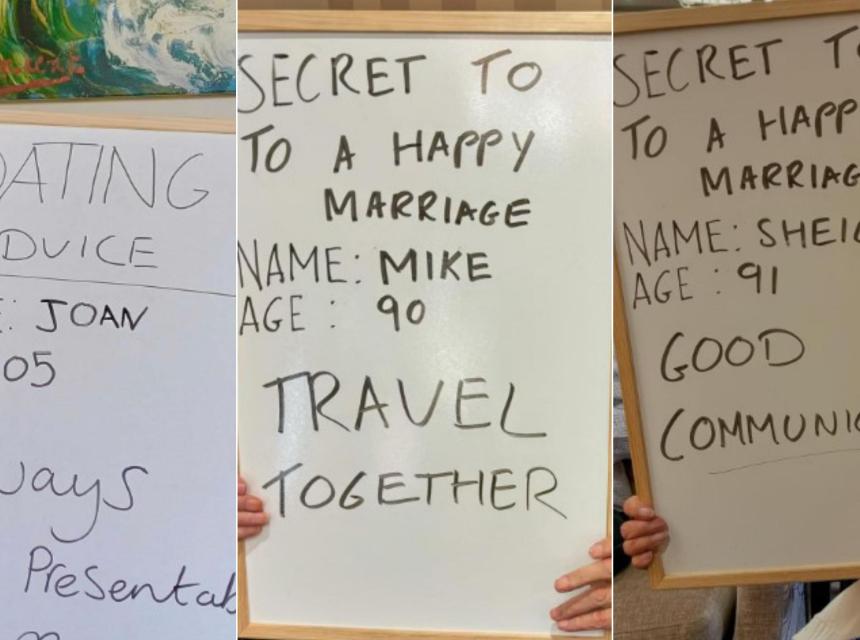 DATING
ADVICE
: JOAN
05
ways
Presentab
SECRET TO
TO A HAPPY
MARRIAGE
NAME: MIKE
AGE : 90
TRAVEL
TOGETHER
SECRET TO
TO A HAPP
MARRIAG
NAME: SHEIL
AGE : 91
GOOD
COMMUNIC